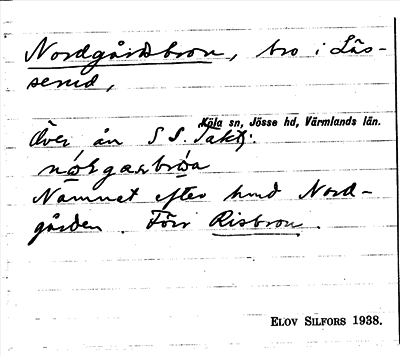 Nordgårdsbron, bro i Lås-
serud,
Köla sn, Jösse hd, Värmlands län.
Över ån S S. Takt.
Namnet efter hmd Nord-
gården. Förr Risbron.
ELOV SILFORS 1938.